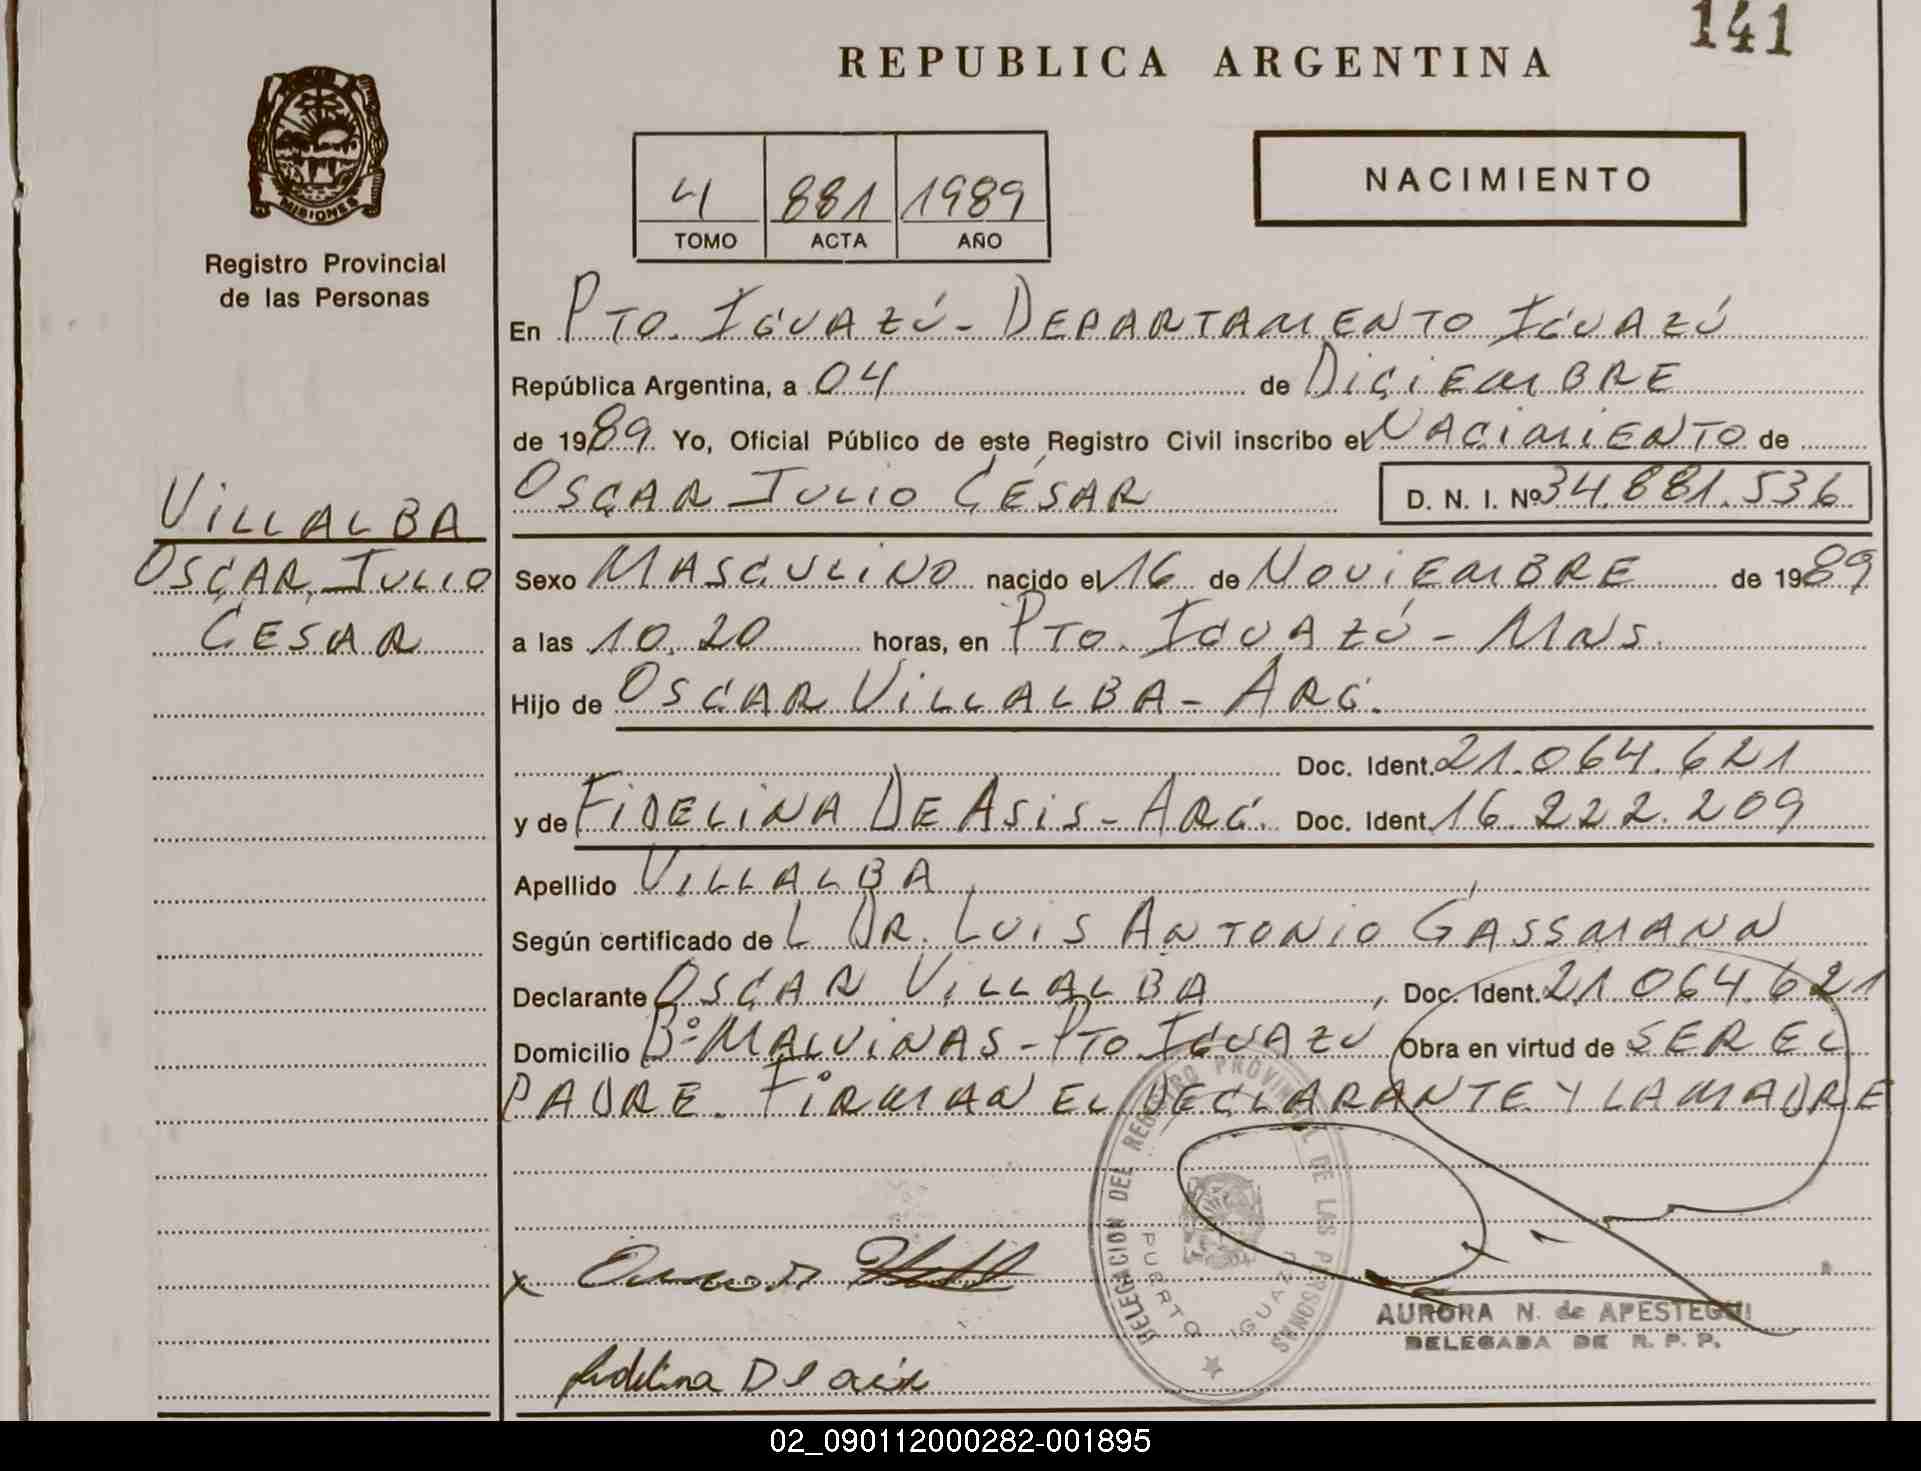 141
REPUBLICA ARGENTINA
MISIONES
Registro Provincial
de las Personas
4 881 1989
TOMO ACTA AÑO
NACIMIENTO
VILLALBA
OSCAR JULIO
CESAR
En PTO. IGUAZÚ - DEPARTAMENTO IGUAZÚ
República Argentina, a 04 de DICIEMBRE
de 1989 Yo, Oficial Público de este Registro Civil inscribo el NACIMIENTO de
OSCAR JULIO CÉSAR D. N. I. Nº 34.881.536
Sexo MASCULINO nacido el 16 de NOVIEMBRE de 1989
a las 10.20 horas, en PTO. IGUAZÚ - MNS.
Hijo de OSCAR VILLALBA - ARG.
Doc. Ident. 21.064.621
y de FIDELINA DE ASIS - ARG. Doc. Ident. 16.222.209
Apellido VILLALBA
Según certificado de L DR. LUIS ANTONIO GASSMANN
Declarante OSCAR VILLALBA, Doc. Ident. 21.064.621
Domicilio Bº MALVINAS - PTO IGUAZU Obra en virtud de SER EL
PADRE. FIRMAN EL DECLARANTE Y LA MADRE
DELEGACION DEL REGISTRO PROVINCIAL DE LAS PERSONAS
PUERTO IGUAZU
x
AURORA N. de APESTEGUI
DELEGADA DE R. P. P.
02_090112000282-001895